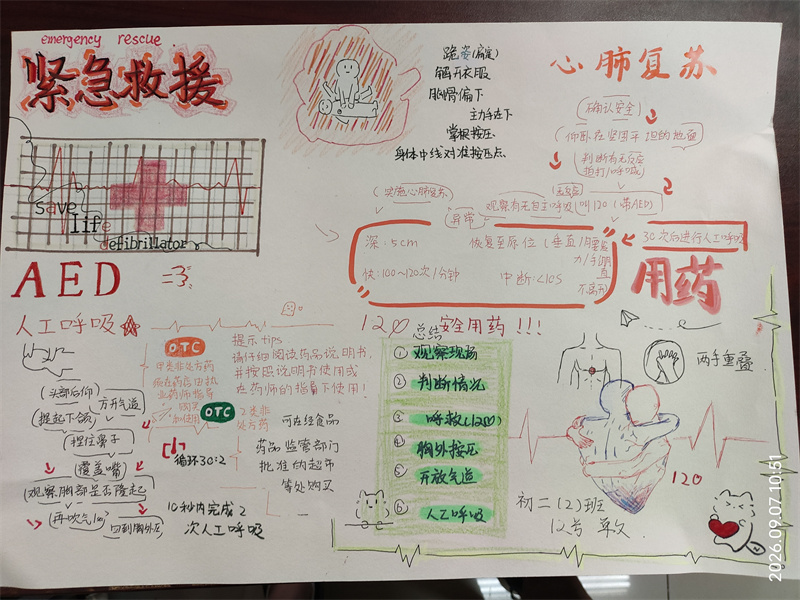 emergency rescue.
紧急救援
save
life
defibrillator
AED
跪姿(固定)
解开衣服
胸骨偏下
主力手在下
掌根按压
身体中线对准按压点
心肺复苏
(确认安全)
(仰卧在坚固平坦的地面
(判断有无反应
拍打/呼喊)
(实施心肺复苏
无反应
观察有无自主呼吸(叫120(带AED)
异常
深:5cm
快:100~120次/分钟
恢复至原位(垂直/用腰
中断:<10s
30次后进行人工呼吸
用药
人工呼吸
(头部后仰)
方开气道
(提起下颌)
(捏住鼻子
(覆盖嘴)
(观察胸部是否隆起)
(再吹气1口
回到胸外压
OTC
甲类非处方药
须在药店由执
业药师指导
购买
和使用
OTC
乙类非
处方药
提示tips
请仔细阅读药品说明书,
并按照说明书使用或
在药师的指导下使用!
可在经食品
药品监管部门
批准的超市
等处购买
循环30:2
10秒内完成2
次人工呼吸
120
安全用药!!!
总结
① 观察现场
② 判断情况
③ 呼救(120)
④ 胸外按压
⑤ 开放气道
⑥ 人工呼吸
两手重叠
120
初二(2)班
12号
2026.09.07 10:51